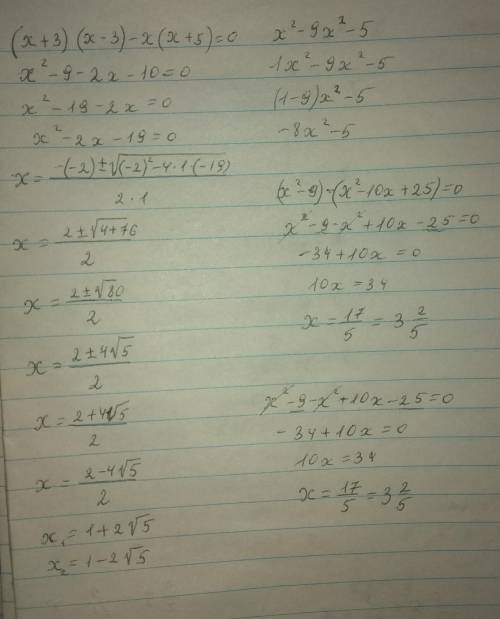 (x+3)(x-3)-x(x+5)=0
x²-9-2x-10=0
x²-19-2x=0
x²-2x-19=0
x=\frac{-(-2)±√(-2)²-4·1·(-19)}{2·1}
x=\frac{2±√4+76}{2}
x=\frac{2±√80}{2}
x=\frac{2±4√5}{2}
x=\frac{2+4√5}{2}
x=\frac{2-4√5}{2}
x₁=1+2√5
x₂=1-2√5
x²-9x²-5
1x²-9x²-5
(1-9)x²-5
-8x²-5
(x²-9)-(x²-10x+25)=0
x²-9-x²+10x-25=0
-34+10x=0
10x=34
x=\frac{17}{5}=3\frac{2}{5}
x²-9-x²+10x-25=0
-34+10x=0
10x=34
x=\frac{17}{5}=3\frac{2}{5}